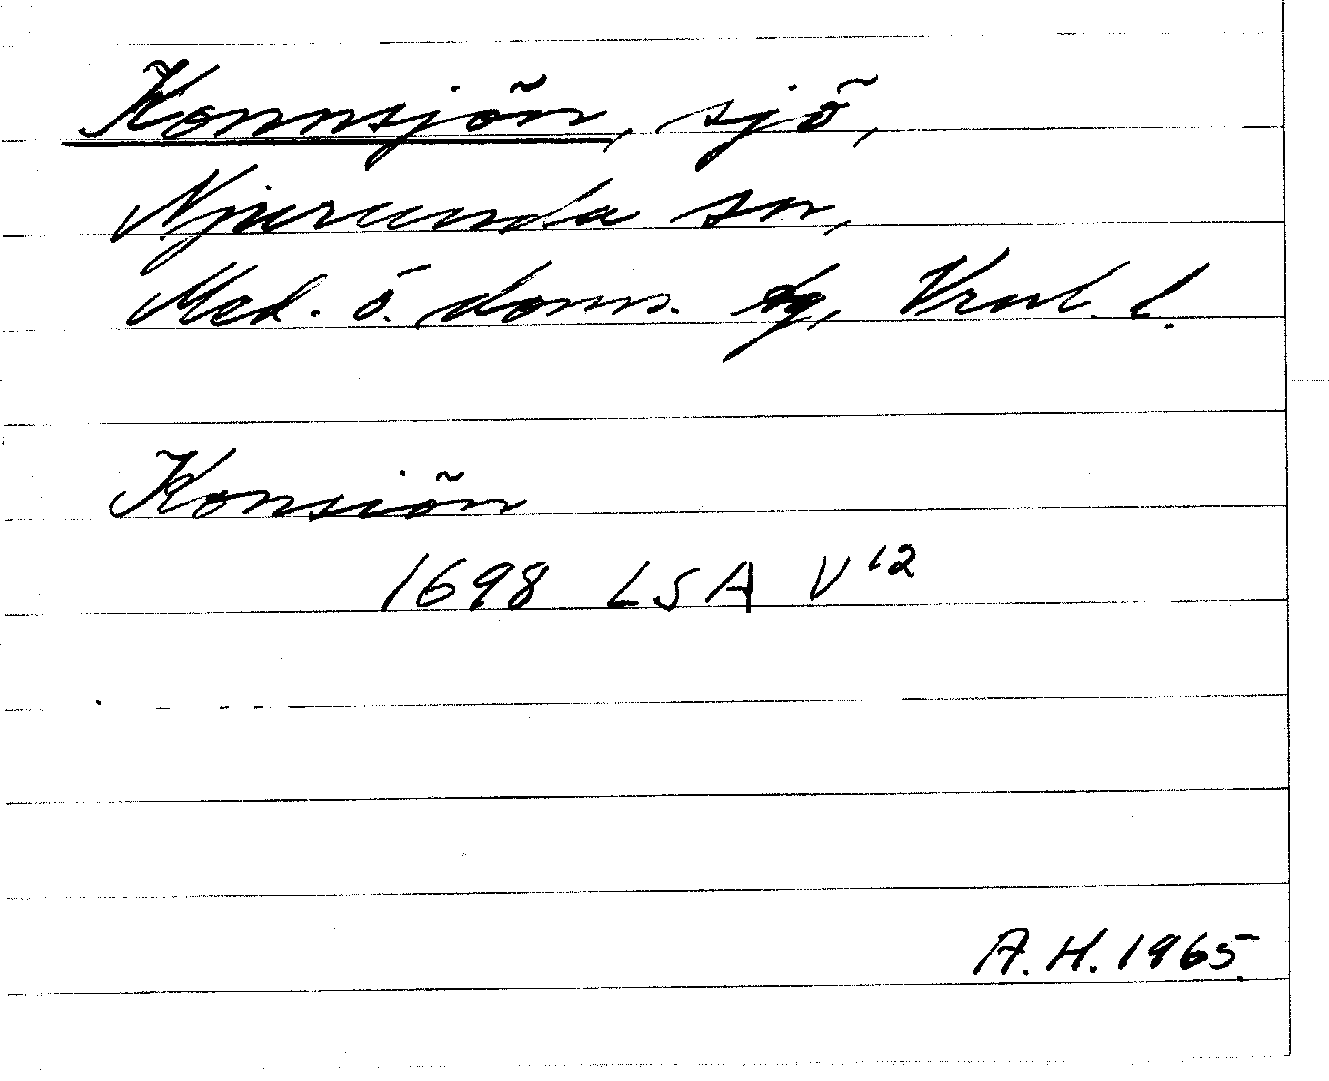 Konnsjön, sjö,
Njurunda sn,
Med. ö. doms. tg, Vnorl. l.
Konsiön
1698 LSA V12
A. H. 1965.